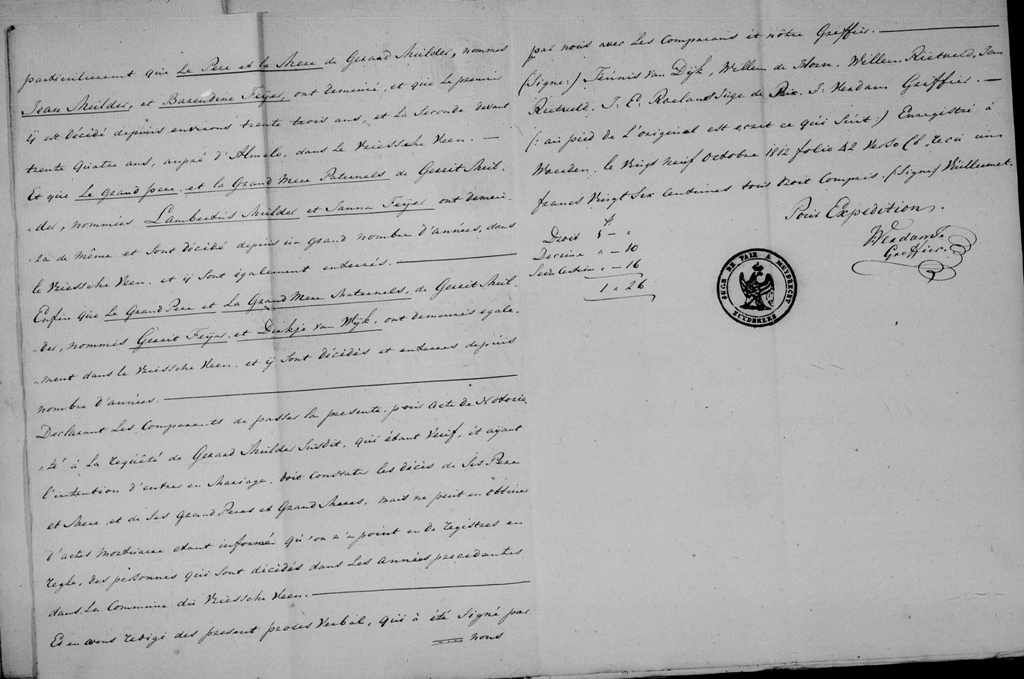 particulierement que Le Pere et la Mere de Gerard Mulder, nommes
Jean Mulder, et Barendine Feijes, ont demeuré, et que le premier
ij est décidé depuis environs trente trois ans, et la Seconde devant
trente Quatre ans, auprè d'Almelo, dans Le Vriessche Veen. —
Et que Le Grand pere, et la Grand Mere Paternels de Gerrit Mul-
-der, nommées Lambertus Mulder et Janna Feijer ont demeu-
-ra de même et sont décidé depuis un grand nombre d'années, dans
le Vriessche Veen, et ij sont également enterrés. —
Enfin que Le Grand Pere et La Grand Mere Maternels, de Gerrit Mul-
-der, nommés Gerrit Feijer, et Dirkje van Wijk, ont demeurés egale-
-ment dans le Vriessche Veen, et ij sont décidés et enterres depuis
nombre d'années. —
Declarant Les Comparants de passer la presente, pour acte de Notorie
-té à La requête de Gerard Mulder Susdit, qui étant Veuf, et ayant
l'intention d'entrer en Mariage, doit Constater les décès de Ses Pere
et Mere, et de Ses Grand Peres et Grand Meres, mais ne peut en obtenir
d'actes Mortuaire etant informé qu'on a point eu de registres en
regle, des personnes qui sont décidés dans Les Années precedantes
dans La Commune du Vriessche Veen. —
Et en avons redigé des present procès Verbal, qui à été Signé par
nous
par nous avec Les Comparans et nôtre Greffier. —
(Signé:) Teunis van Dijk, Willem de Hoen, Willem Rietveld, Jan
Rietveld. J. E. Roelans Juge de Paix. J. Verdam Greffier. —
(: au pied de L'original est ecrit ce qui Suit:) Enregistré à
Woerden, le Vingt neuf Octobre 1812 folio 42 Verso C 8, recu un
francs Vingt Six Centimes tous droit Compris. (Signé) Vuillemet.
Pour Expedition.
Verdam J.
Greffier.
f
Droit 1 — "
Decime " — 10
" — 16
1 " 26
JUGE DE PAIX A MYDRECHT
ZUYDERZEE